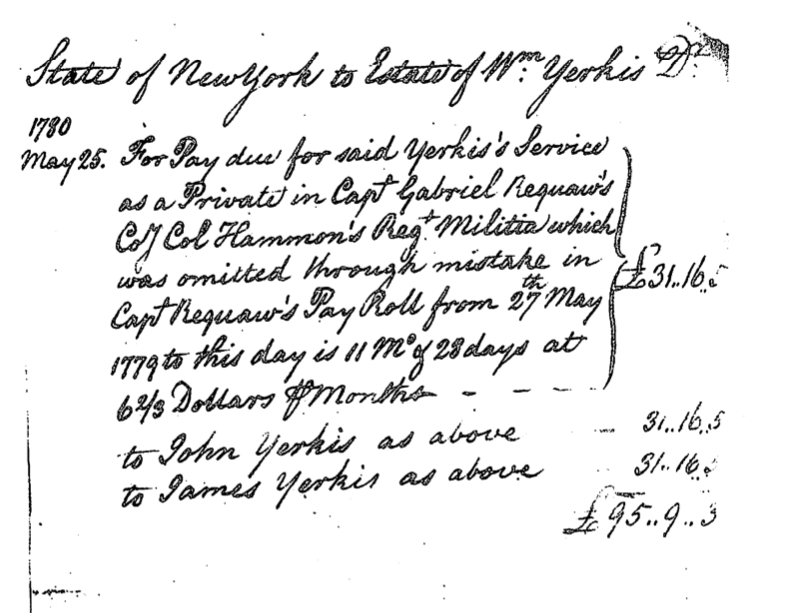 State of New York to Estate of Wm. Yerkis Dr
1780
May 25. For Pay due for said Yerkis's Service
as a Private in Capt Gabriel Requaw's
Coy Col Hammon's Regt. Militia which
was omitted through mistake in £31..16..5
Capt Requaw's Pay Roll from 27th May
1779 to this day is 11 Mo & 28 days at
6 2/3 Dollars ⅌ Months - - -
to John Yerkis as above - 31..16..5
to James Yerkis as above 31..16..5
£95..9..3